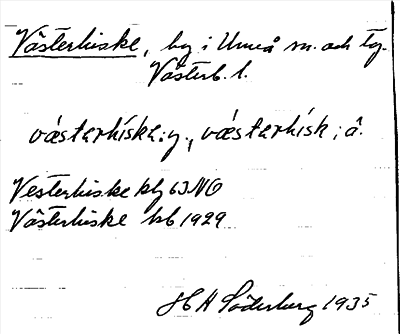 Västerhiske, by i Umeå sn. och tg.
Västerb. l.
västerhíske:y., västerhísk; ä.
Vesterhiske kbg 63 NO
Västerhiske kb 1929
H A Söderberg 1935